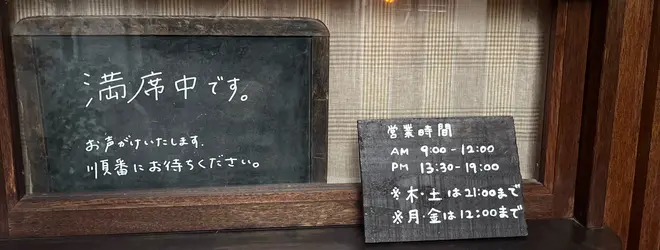 満席中です。
お声がけいたします.
順番にお待ちください。
営業時間
AM 9:00-12:00
PM 13:30-19:00
※木・土は21:00まで
※月・金は12:00まで